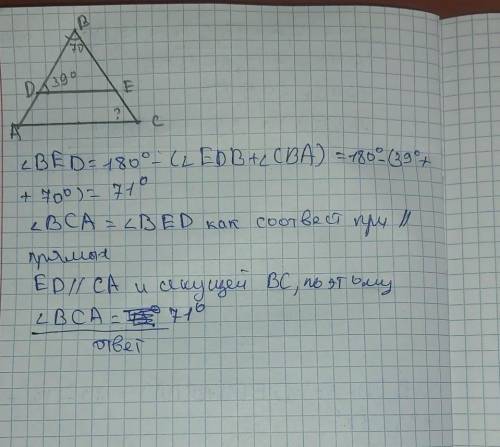 B
70
D 39° E
A ? C
∠BED = 180° - (∠EDB + ∠CBA) = 180° - (39° +
+ 70°) = 71°
∠BCA = ∠BED как соответ при //
прямых
ED // CA и секущей BC, поэтому
∠BCA = 71°
ответ